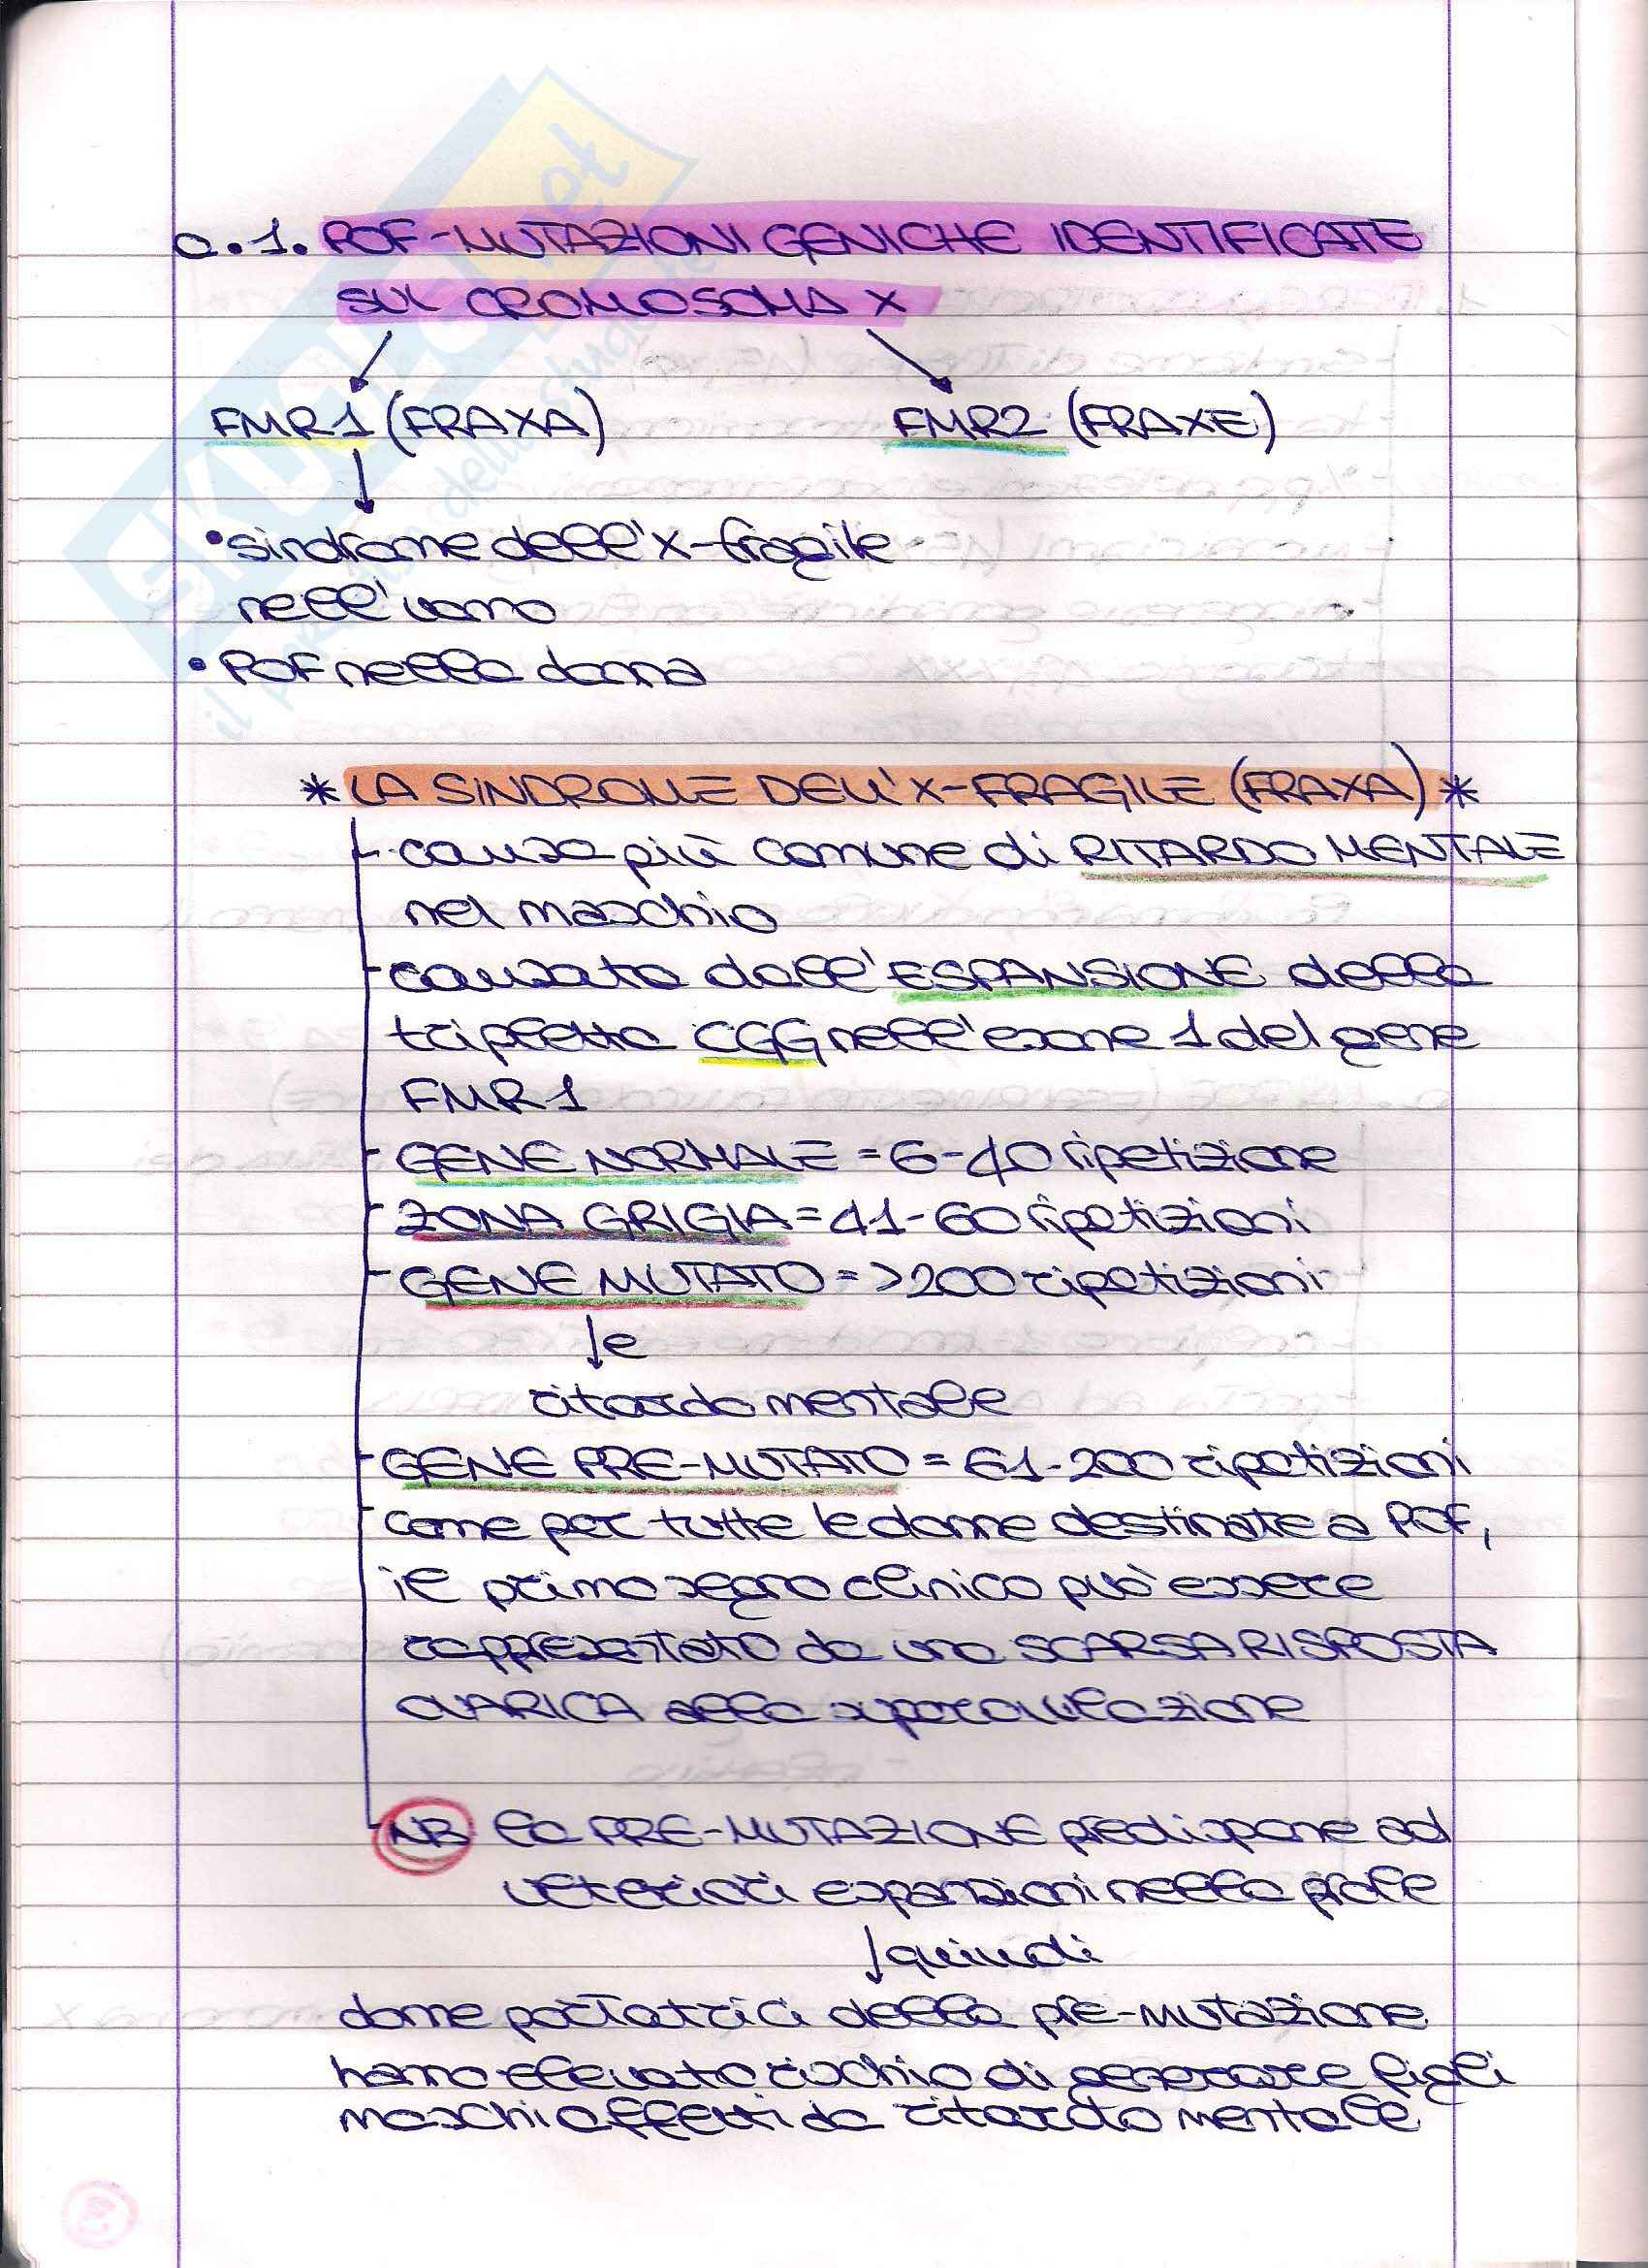 a.1. POF-MUTAZIONI GENICHE IDENTIFICATE
SUL CROMOSOMA X
FMR1 (FRAXA) FMR2 (FRAXE)
• sindrome dell'X-fragile
nell'uomo
• POF nella donna
* LA SINDROME DELL'X-FRAGILE (FRAXA) *
- causa più comune di RITARDO MENTALE
nel maschio
- causata dall'ESPANSIONE della
tripletta CGG nell'esone 1 del gene
FMR1
- GENE NORMALE = 6-40 ripetizione
- ZONA GRIGIA = 41-60 ripetizioni
- GENE MUTATO = >200 ripetizioni
↓ e
ritardo mentale
- GENE PRE-MUTATO = 61-200 ripetizioni
- come per tutte le donne destinate a POF,
il primo segno clinico può essere
rappresentato da una SCARSA RISPOSTA
OVARICA alla superovulazione
NB la PRE-MUTAZIONE predispone ad
ulteriori espansioni nella prole
↓ quindi
donne portatrici della pre-mutazione
hanno elevato rischio di generare figli
maschi affetti da ritardo mentale
SKUOLA.net
il portale dello studente